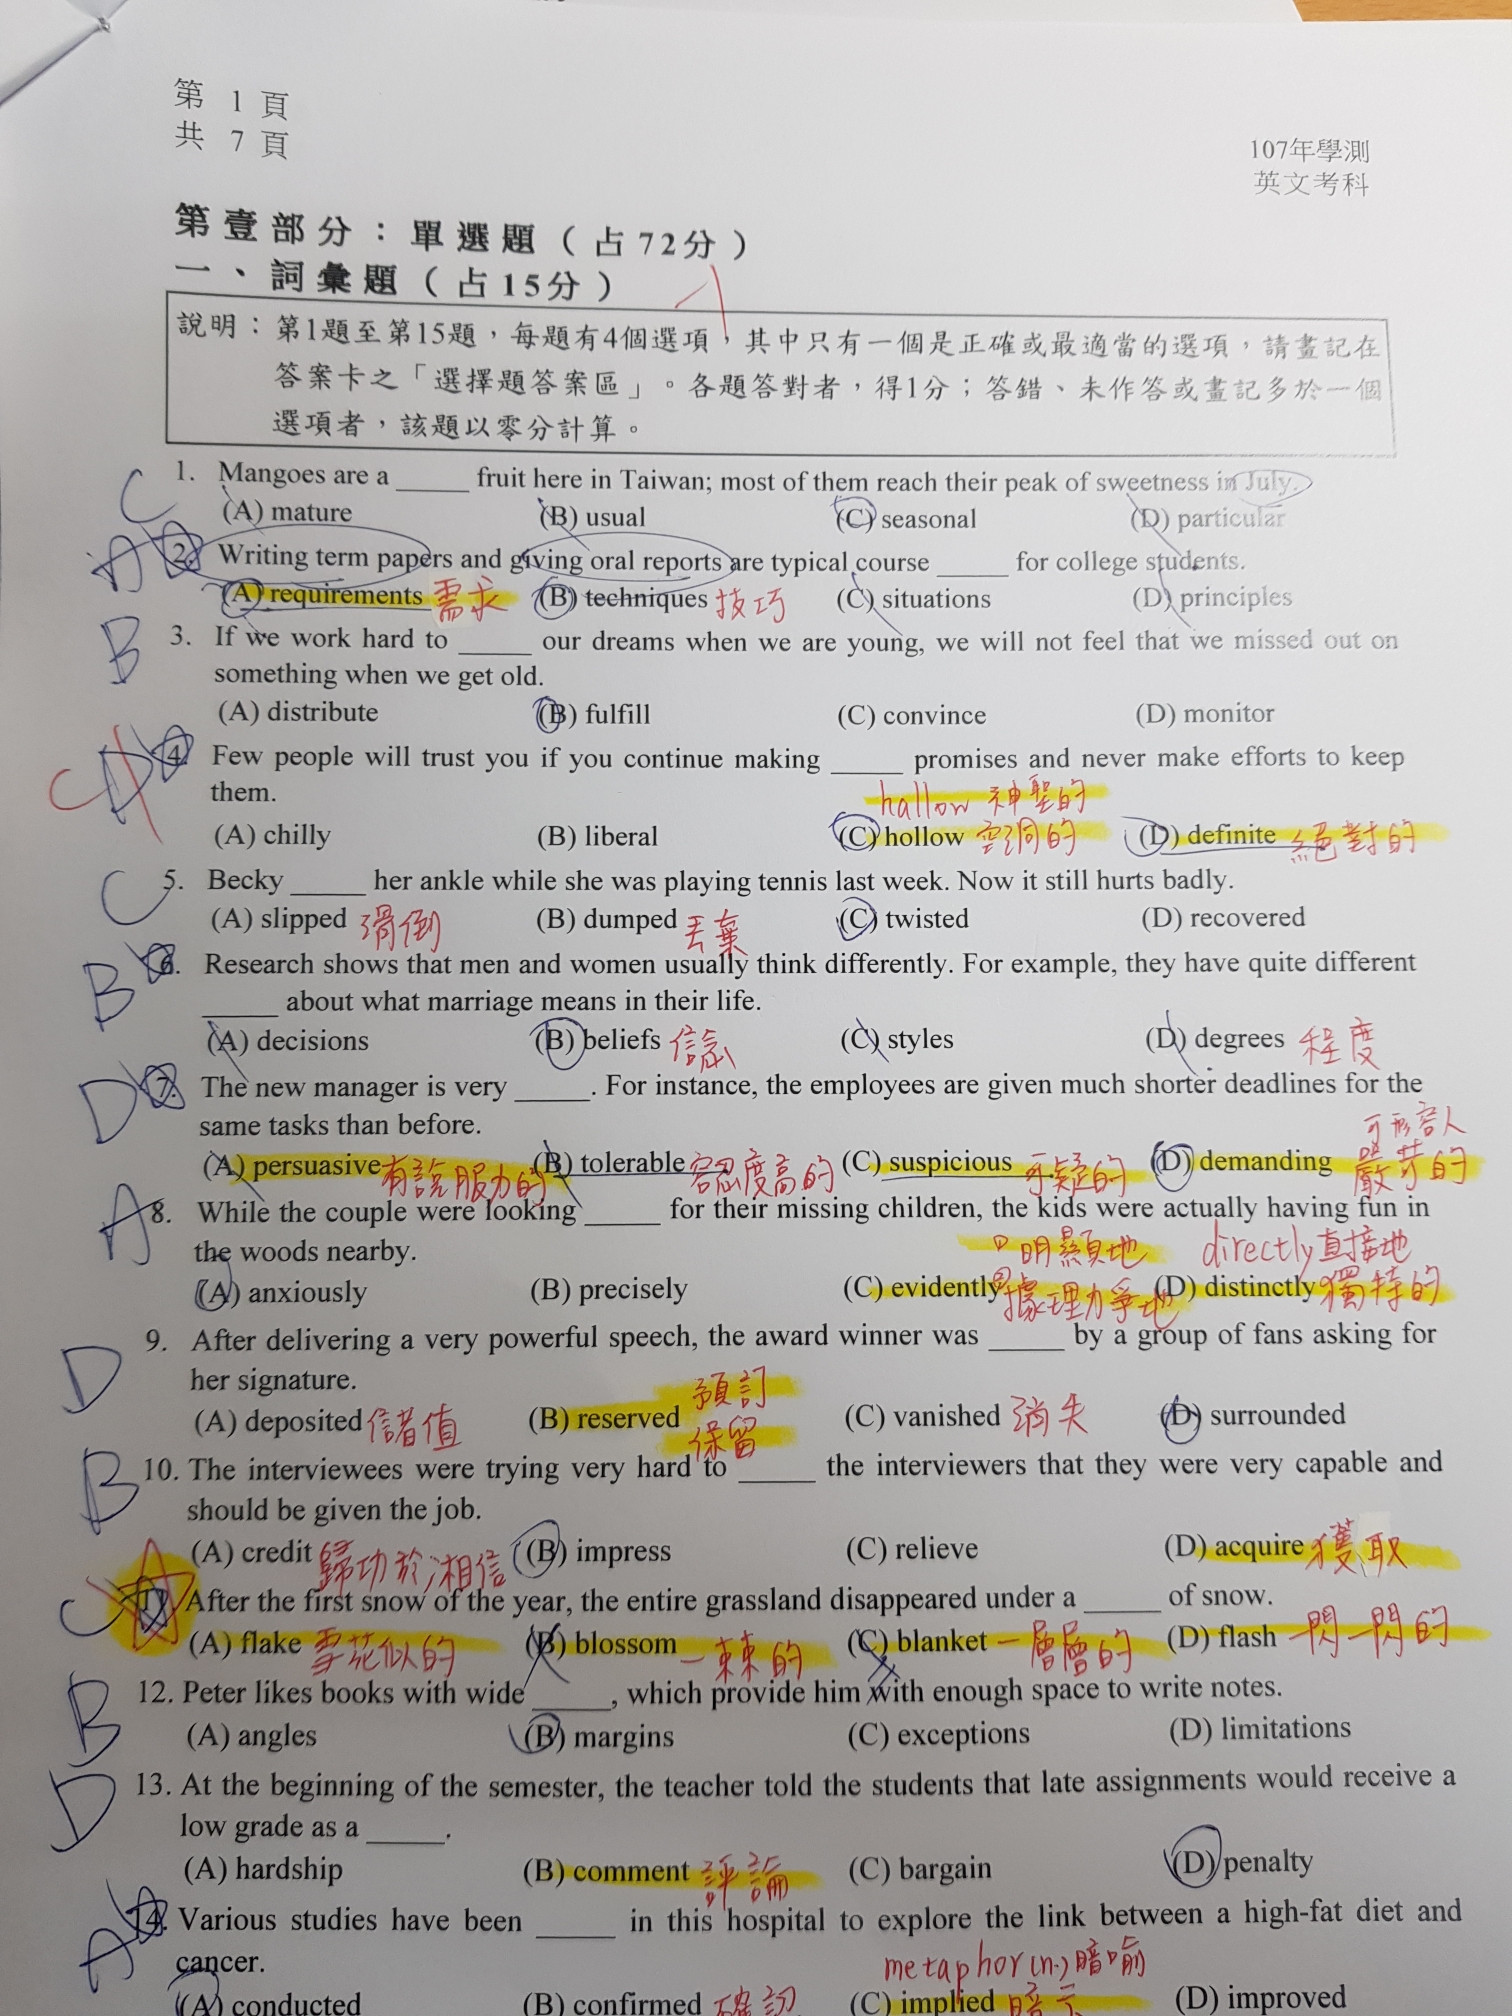 第 1 頁
共 7 頁
107年學測
英文考科
第壹部分：單選題（占72分）
一、詞彙題（占15分）
說明：第1題至第15題，每題有4個選項，其中只有一個是正確或最適當的選項，請畫記在
答案卡之「選擇題答案區」。各題答對者，得1分；答錯、未作答或畫記多於一個
選項者，該題以零分計算。
C 1. Mangoes are a _____ fruit here in Taiwan; most of them reach their peak of sweetness in July.
(A) mature (B) usual (C) seasonal (D) particular
A 2. Writing term papers and giving oral reports are typical course _____ for college students.
(A) requirements 需求 (B) techniques 技巧 (C) situations (D) principles
B 3. If we work hard to _____ our dreams when we are young, we will not feel that we missed out on
something when we get old.
(A) distribute (B) fulfill (C) convince (D) monitor
C D 4. Few people will trust you if you continue making _____ promises and never make efforts to keep
them.
hallow 神聖的
(A) chilly (B) liberal (C) hollow 空洞的 (D) definite 絕對的
C 5. Becky _____ her ankle while she was playing tennis last week. Now it still hurts badly.
(A) slipped 滑倒 (B) dumped 丟棄 (C) twisted (D) recovered
B 6. Research shows that men and women usually think differently. For example, they have quite different
_____ about what marriage means in their life.
(A) decisions (B) beliefs 信念 (C) styles (D) degrees 程度
D 7. The new manager is very _____. For instance, the employees are given much shorter deadlines for the
same tasks than before.
可形容人
(A) persuasive 有說服力的 (B) tolerable 容忍度高的 (C) suspicious 可疑的 (D) demanding 嚴苛的
A 8. While the couple were looking _____ for their missing children, the kids were actually having fun in
the woods nearby.
①明顯地 directly 直接地
(A) anxiously (B) precisely (C) evidently ②據理力爭地 (D) distinctly 獨特的
D 9. After delivering a very powerful speech, the award winner was _____ by a group of fans asking for
her signature.
預訂
(A) deposited 儲值 (B) reserved (C) vanished 消失 (D) surrounded
保留
B 10. The interviewees were trying very hard to _____ the interviewers that they were very capable and
should be given the job.
(A) credit 歸功於;相信 (B) impress (C) relieve (D) acquire 獲取
C 11. After the first snow of the year, the entire grassland disappeared under a _____ of snow.
(A) flake 雪花似的 (B) blossom 一束束的 (C) blanket 一層層的 (D) flash 一閃一閃的
B 12. Peter likes books with wide _____, which provide him with enough space to write notes.
(A) angles (B) margins (C) exceptions (D) limitations
D 13. At the beginning of the semester, the teacher told the students that late assignments would receive a
low grade as a _____.
(A) hardship (B) comment 評論 (C) bargain (D) penalty
A 14. Various studies have been _____ in this hospital to explore the link between a high-fat diet and
cancer.
metaphor (n.) 暗喻
(A) conducted (B) confirmed 確認 (C) implied 暗示 (D) improved